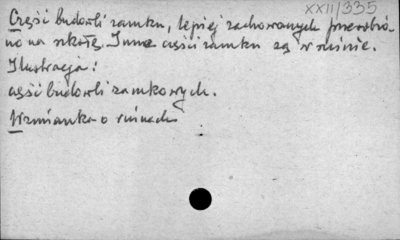 XXII/335
Część budowli zamku, lepiej zachowanych przerobio-
no na szkołę. Inne części zamku są w ruinie.
Ilustracja:
część budowli zamkowych.
Wzmianka o ruinach